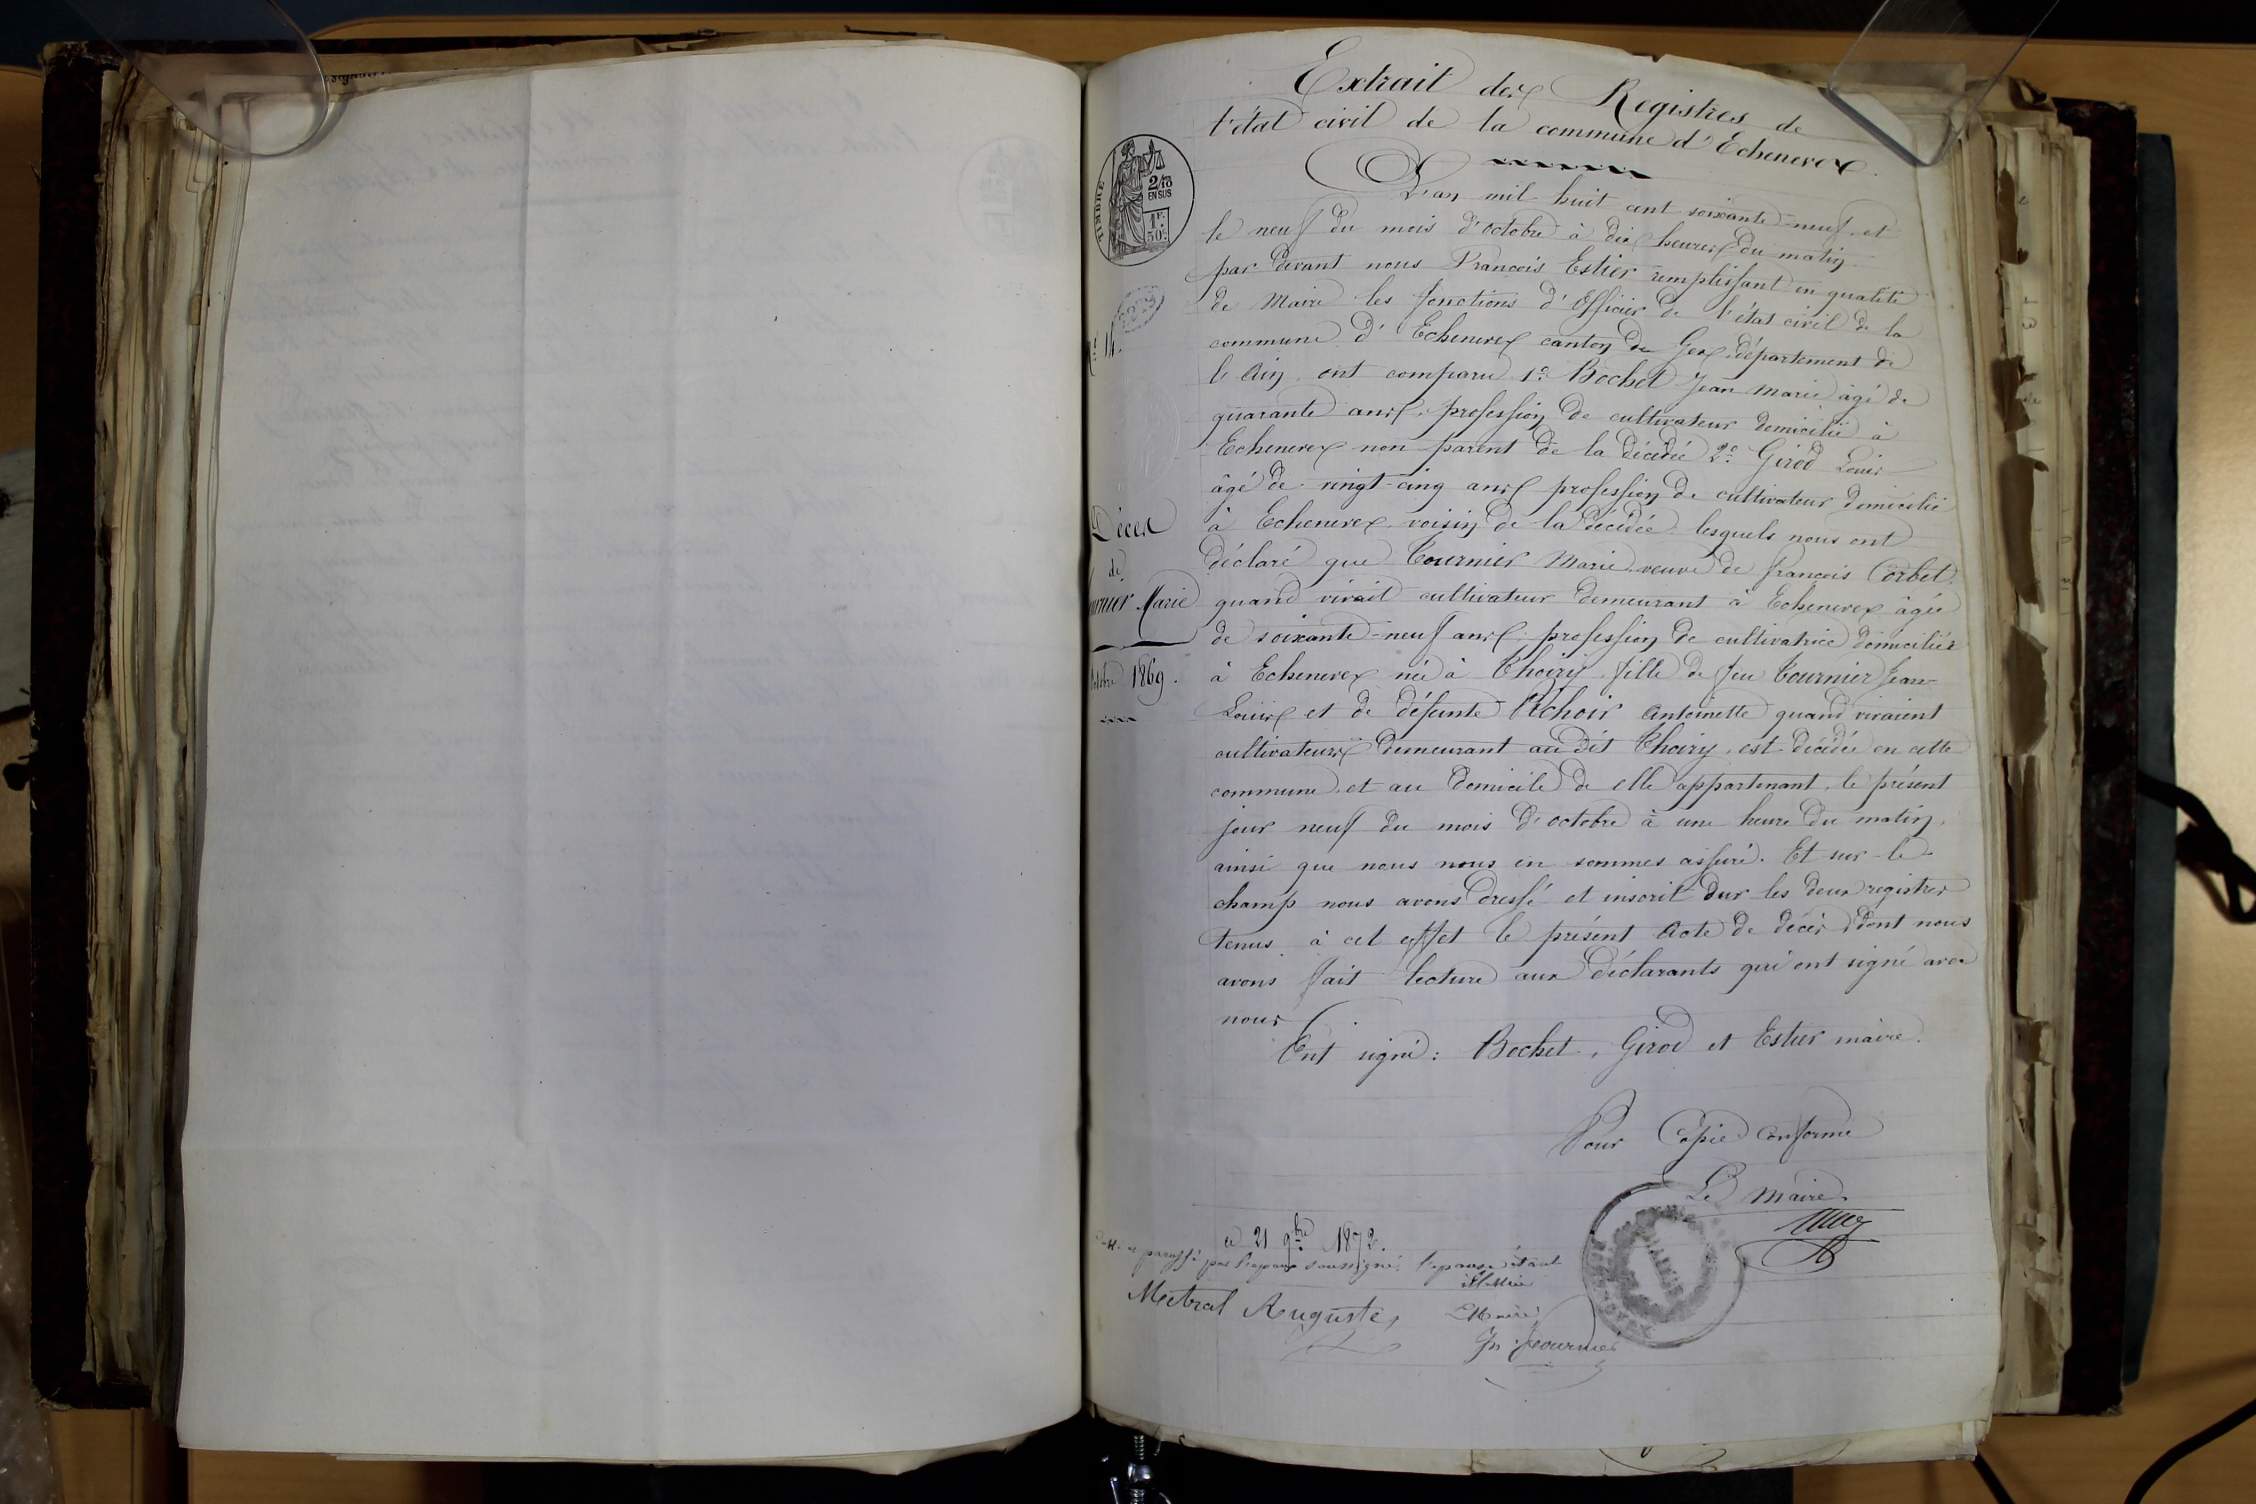 Extrait des Registres de
l'état civil de la commune d'Echenevex.
TIMBRE
2/10
EN SUS
1F.
50c.
L'an mil huit cent soixante-neuf et
le neuf du mois d'octobre à dix heures du matin
par devant nous Francois Estier remplissant en qualité
de Maire les fonctions d'Officier de l'état civil de la
commune d'Echenevex canton de Gex département de
l'Ain, ont comparu 1° Bochet Jean Marie âgé de
quarante ans, profession de cultivateur domicilié à
Echenevex non parent de la décédée 2° Girod Louis
âgé de vingt-cinq ans profession de cultivateur domicilié
à Echenevex voisin de la décédée lesquels nous ont
déclaré que Tournier Marie veuve de françois Corbet
quand vivait cultivateur demeurant à Echenevex âgée
de soixante-neuf ans, profession de cultivatrice domiciliée
à Echenevex née à Thoiry fille de feu Tournier Jean
Louis et de défunte Péchoir Antoinette quand vivaient
cultivateurs demeurant au dit Thoiry, est décédée en cette
commune et au domicile de elle appartenant, le présent
jour neuf du mois d'octobre à une heure du matin,
ainsi que nous nous en sommes assuré. Et sur-le
champ nous avons dressé et inscrit sur les deux registres
tenus à cet effet le présent Acte de décès dont nous
avons fait lecture aux déclarants qui ont signé avec
nous
Ont signé: Bochet, Girod et Estier maire.
Pour Copie Conforme
Le Maire
14.
Décès
de
Marie
1869.
ce 21 9bre 1872.
soussigné, l'épouse étant
illettrée
Metral Auguste,
Le Maire
Jn Fournier